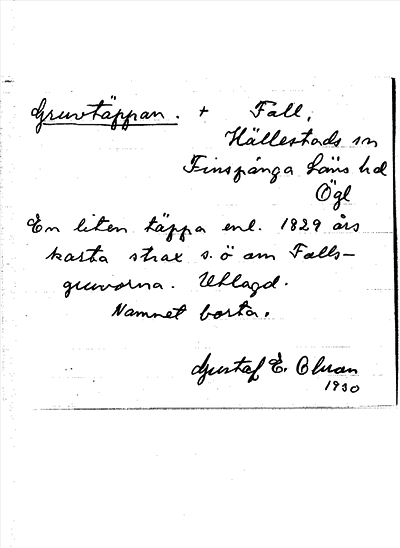 Gruvtäppan. + Fall,
Hällestads sn
Finspånga läns hd
Ögl
En liten täppa enl. 1829 års
karta strax s.ö om Falls-
gruvorna. Utlagd.
Namnet borta.
Gustaf E. Olsson
1930